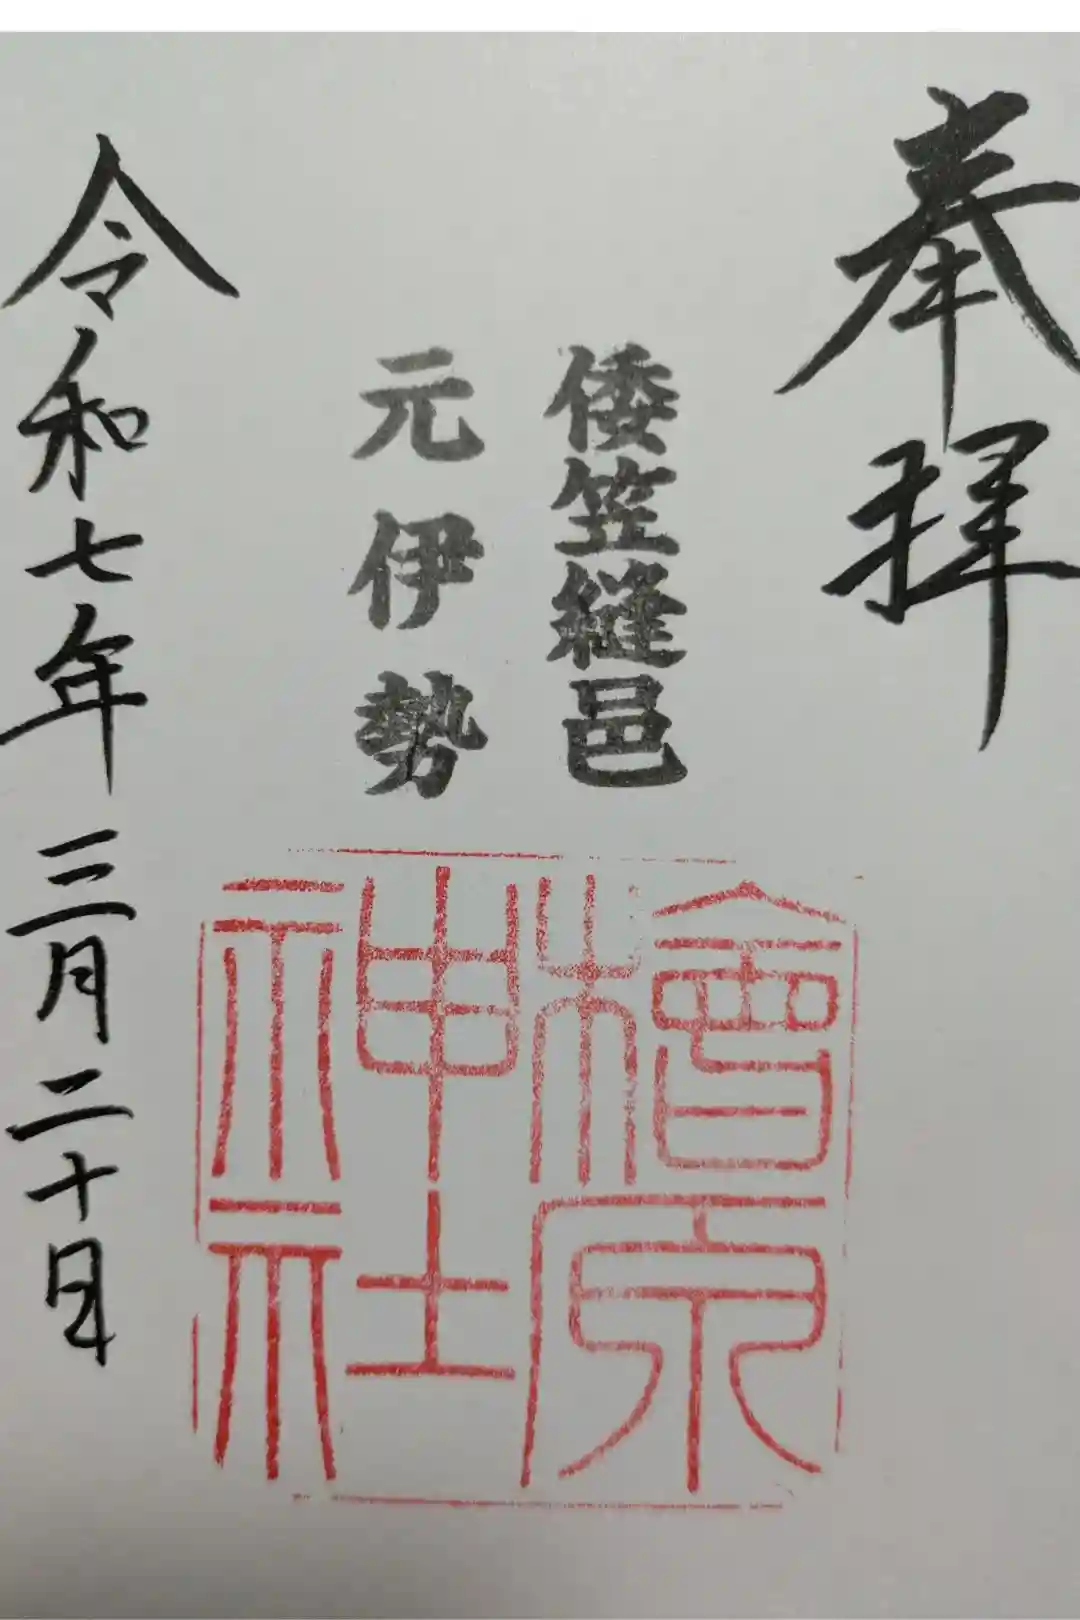 奉拝
倭笠縫邑
元伊勢
檜原
神社
令和七年三月二十日